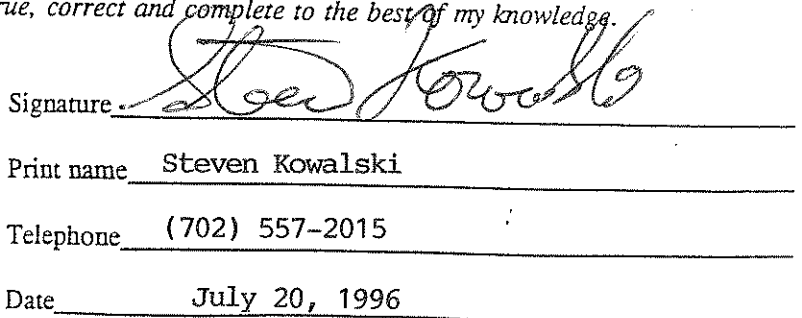 rue, correct and complete to the best of my knowledge.
Signature Steven Kowalski
Print name Steven Kowalski
Telephone (702) 557-2015
Date July 20, 1996